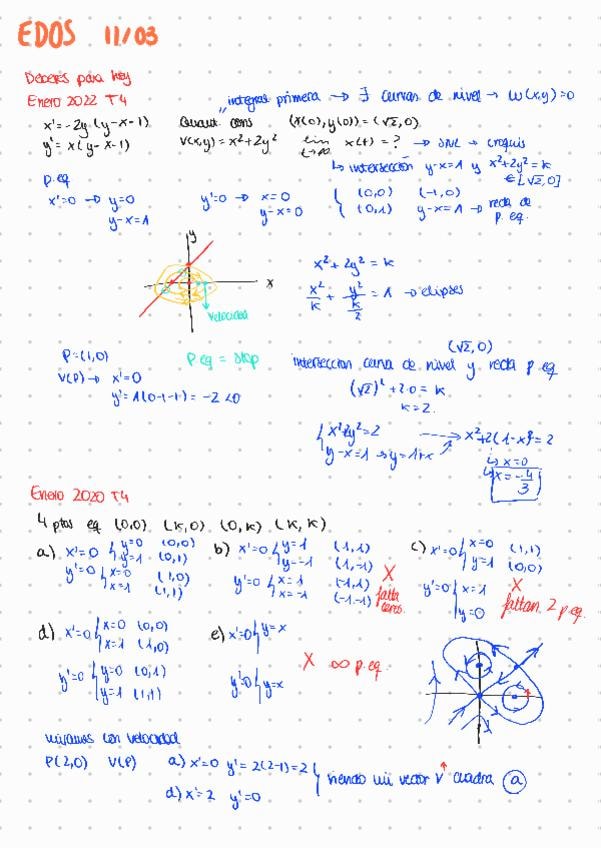 EDOS 11/03
Deberes para hoy
Enero 2022 T4
"integral primera → ∃ curvas de nivel → W(x,y)=0
x'=-2y(y-x-1) cons (x(0),y(0))=(√2,0)
y'=x(y-x-1) V(x,y)=x²+2y² lim x(t)=? → croquis
t→∞
↳ intersección y-x=1 y x²+2y²=k
∈[√2,0]
p.eq
x'=0 → y=0 y'=0 → x=0 (0,0) (-1,0)
y-x=1 y-x=0 (0,1) y-x=1 → recta de p.eq.
y
x
velocidad
x²+2y²=k
x²/k + y²/(k/2) = 1 → elipses
P=(1,0) P eq = stop
V(P) → x'=0
y'=1(0-1-1)=-2<0
(√2,0)
interseccion curva de nivel y recta p eq
(√2)²+2·0=k
k=2.
x²+2y²=2 → x²+2(1-x)²=2
y-x=1 → y=1+x
↳ x=0
↳ x=-4/3
Enero 2020 T4
4 ptos eq (0,0) (k,0) (0,k) (k,k)
a) x'=0 y=0 (0,0)
y=1 (0,1)
y'=0 x=0 (1,0)
x=1 (1,1)
b) x'=0 y=1 (1,1)
y=-1 (1,-1)
y'=0 x=1 (-1,1)
x=-1 (-1,-1)
X
falta
c) x'=0 x=0 (1,1)
y=1 (0,0)
y'=0 x=1
y=0
X
faltan 2 p.eq.
d) x'=0 x=0 (0,0)
x=1 (1,0)
y'=0 y=0 (0,1)
y=1 (1,1)
e) x'=0 y=x
y'=0 y=x
X ∞ p.eq
miramos con velocidad
P(2,0) V(P) a) x'=0 y'=2(2-1)=2
d) x'=2 y'=0
siendo mi vector v↑ cuadra a